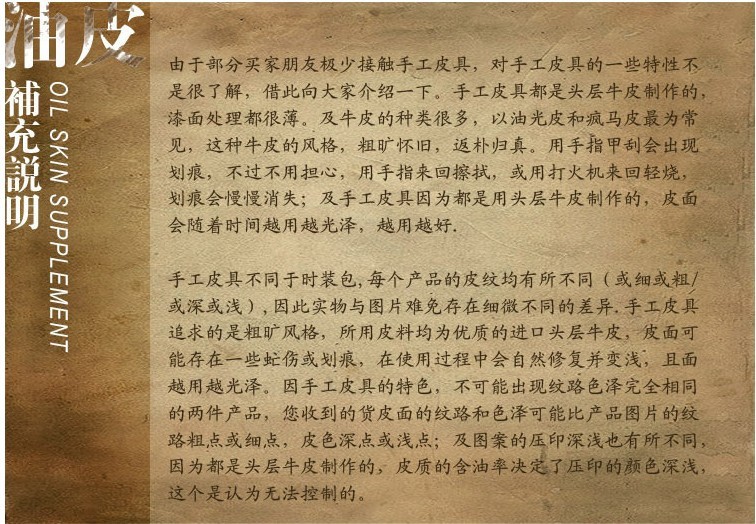 油皮
補充説明
OIL SKIN SUPPLEMENT
由于部分买家朋友极少接触手工皮具，对手工皮具的一些特性不
是很了解，借此向大家介绍一下。手工皮具都是头层牛皮制作的，
漆面处理都很薄。及牛皮的种类很多，以油光皮和疯马皮最为常
见，这种牛皮的风格，粗旷怀旧，返朴归真。用手指甲刮会出现
划痕，不过不用担心，用手指来回擦拭，或用打火机来回轻烧，
划痕会慢慢消失；及手工皮具因为都是用头层牛皮制作的，皮面
会随着时间越用越光泽，越用越好.
手工皮具不同于时装包,每个产品的皮纹均有所不同（或细或粗/
或深或浅）,因此实物与图片难免存在细微不同的差异.手工皮具
追求的是粗旷风格，所用皮料均为优质的进口头层牛皮，皮面可
能存在一些虻伤或划痕，在使用过程中会自然修复并变浅，且面
越用越光泽。因手工皮具的特色，不可能出现纹路色泽完全相同
的两件产品，您收到的货皮面的纹路和色泽可能比产品图片的纹
路粗点或细点，皮色深点或浅点；及图案的压印深浅也有所不同，
因为都是头层牛皮制作的，皮质的含油率决定了压印的颜色深浅，
这个是认为无法控制的。